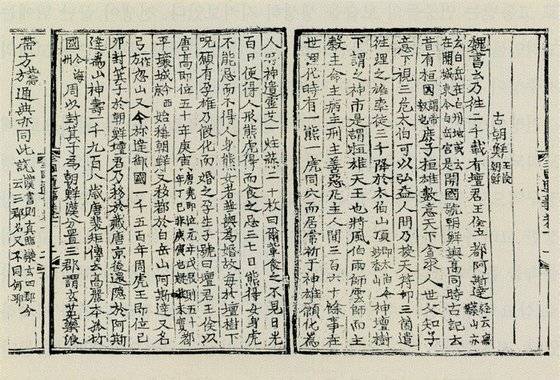 古朝鮮 王儉朝鮮
魏書云乃徃二千載有壇君王儉立都阿斯達 經云無葉山亦
云白岳在白州地或云在開城東今白岳宮是 開國號朝鮮與高同時古記云
昔有桓囯 謂帝釋也 庶子桓雄數意天下貪求人世父知子
意下視三危太伯可以弘益人間乃授天符印三箇遣
徃理之雄率徒三千降於太伯山頂 即太伯今妙香山 神壇樹
下謂之神市是謂桓雄天王也將風伯雨師雲師而主
穀主命主病主刑主善惡凡主人間三百六十餘事在
世理化時有一熊一虎同穴而居常祈于神雄願化爲
人時神遺靈艾一炷蒜二十枚曰爾軰食之不見日光
百日便得人形熊虎得而食之忌三七日熊得女身虎
不能忌而不得人身熊女者無與爲婚故每於壇樹下
呪願有孕雄乃假化而婚之孕生子號曰壇君王儉以
唐高即位五十年庚寅 唐高即位元年戊辰則五十年丁巳非庚寅也疑其未實 都
平壤城 今西京 始稱朝鮮又移都於白岳山阿斯達又名
弓 一作方 忽山又今旀達御國一千五百年周虎王即位己
卯封箕子於朝鮮壇君乃移於藏唐京後還隱於阿斯
達爲山神壽一千九百八歲唐裵矩傳云高麗本孤竹
國 今海州 周以封箕子爲朝鮮漢分置三郡謂玄菟樂浪
帶方 北帶方 通典亦同此說 漢書則真臨樂玄四郡今云三郡名又不同何耶